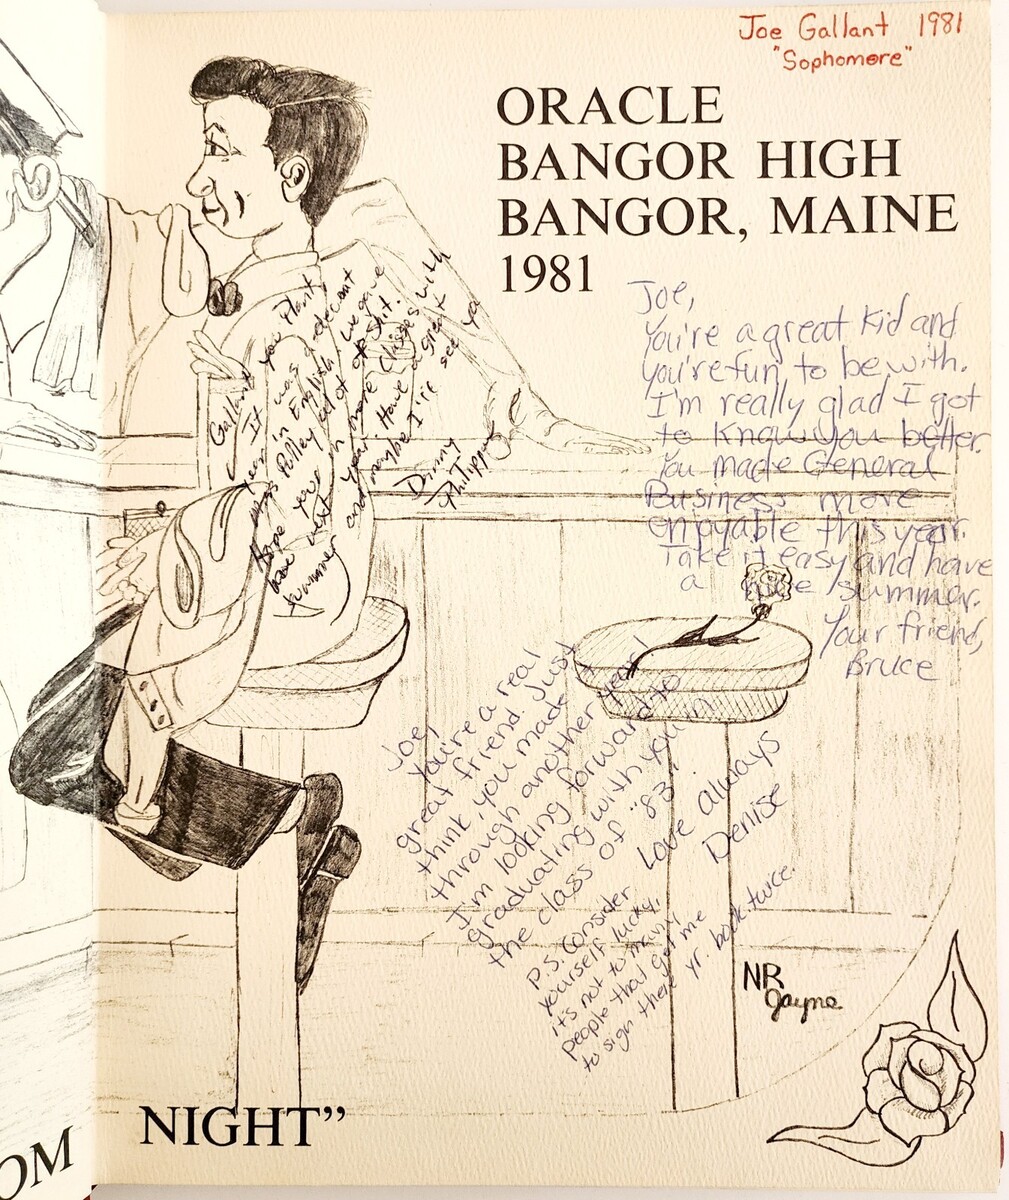 Joe Gallant 1981
"Sophomore"
ORACLE
BANGOR HIGH
BANGOR, MAINE
1981
Joe,
You're a great kid and
you're fun to be with.
I'm really glad I got
to know you better.
You made General
Business more
enjoyable this year.
Take it easy and have
a nice summer.
Your friend,
Bruce
Gallant you
It was a decent
year in English
Miss Polley out of
Hope your in more classes with
next year. Have a great
summer and maybe I'll see ya
Dinny
Joey
You're a real
great friend. Just
think, you made it
through another year!
I'm looking forward to
graduating with you in
the class of "83".
Love always
Denise
P.S. Consider
yourself lucky,
it's not to many
people that get me
to sign there yr. book twice.
NR
Jayne
OM
NIGHT”